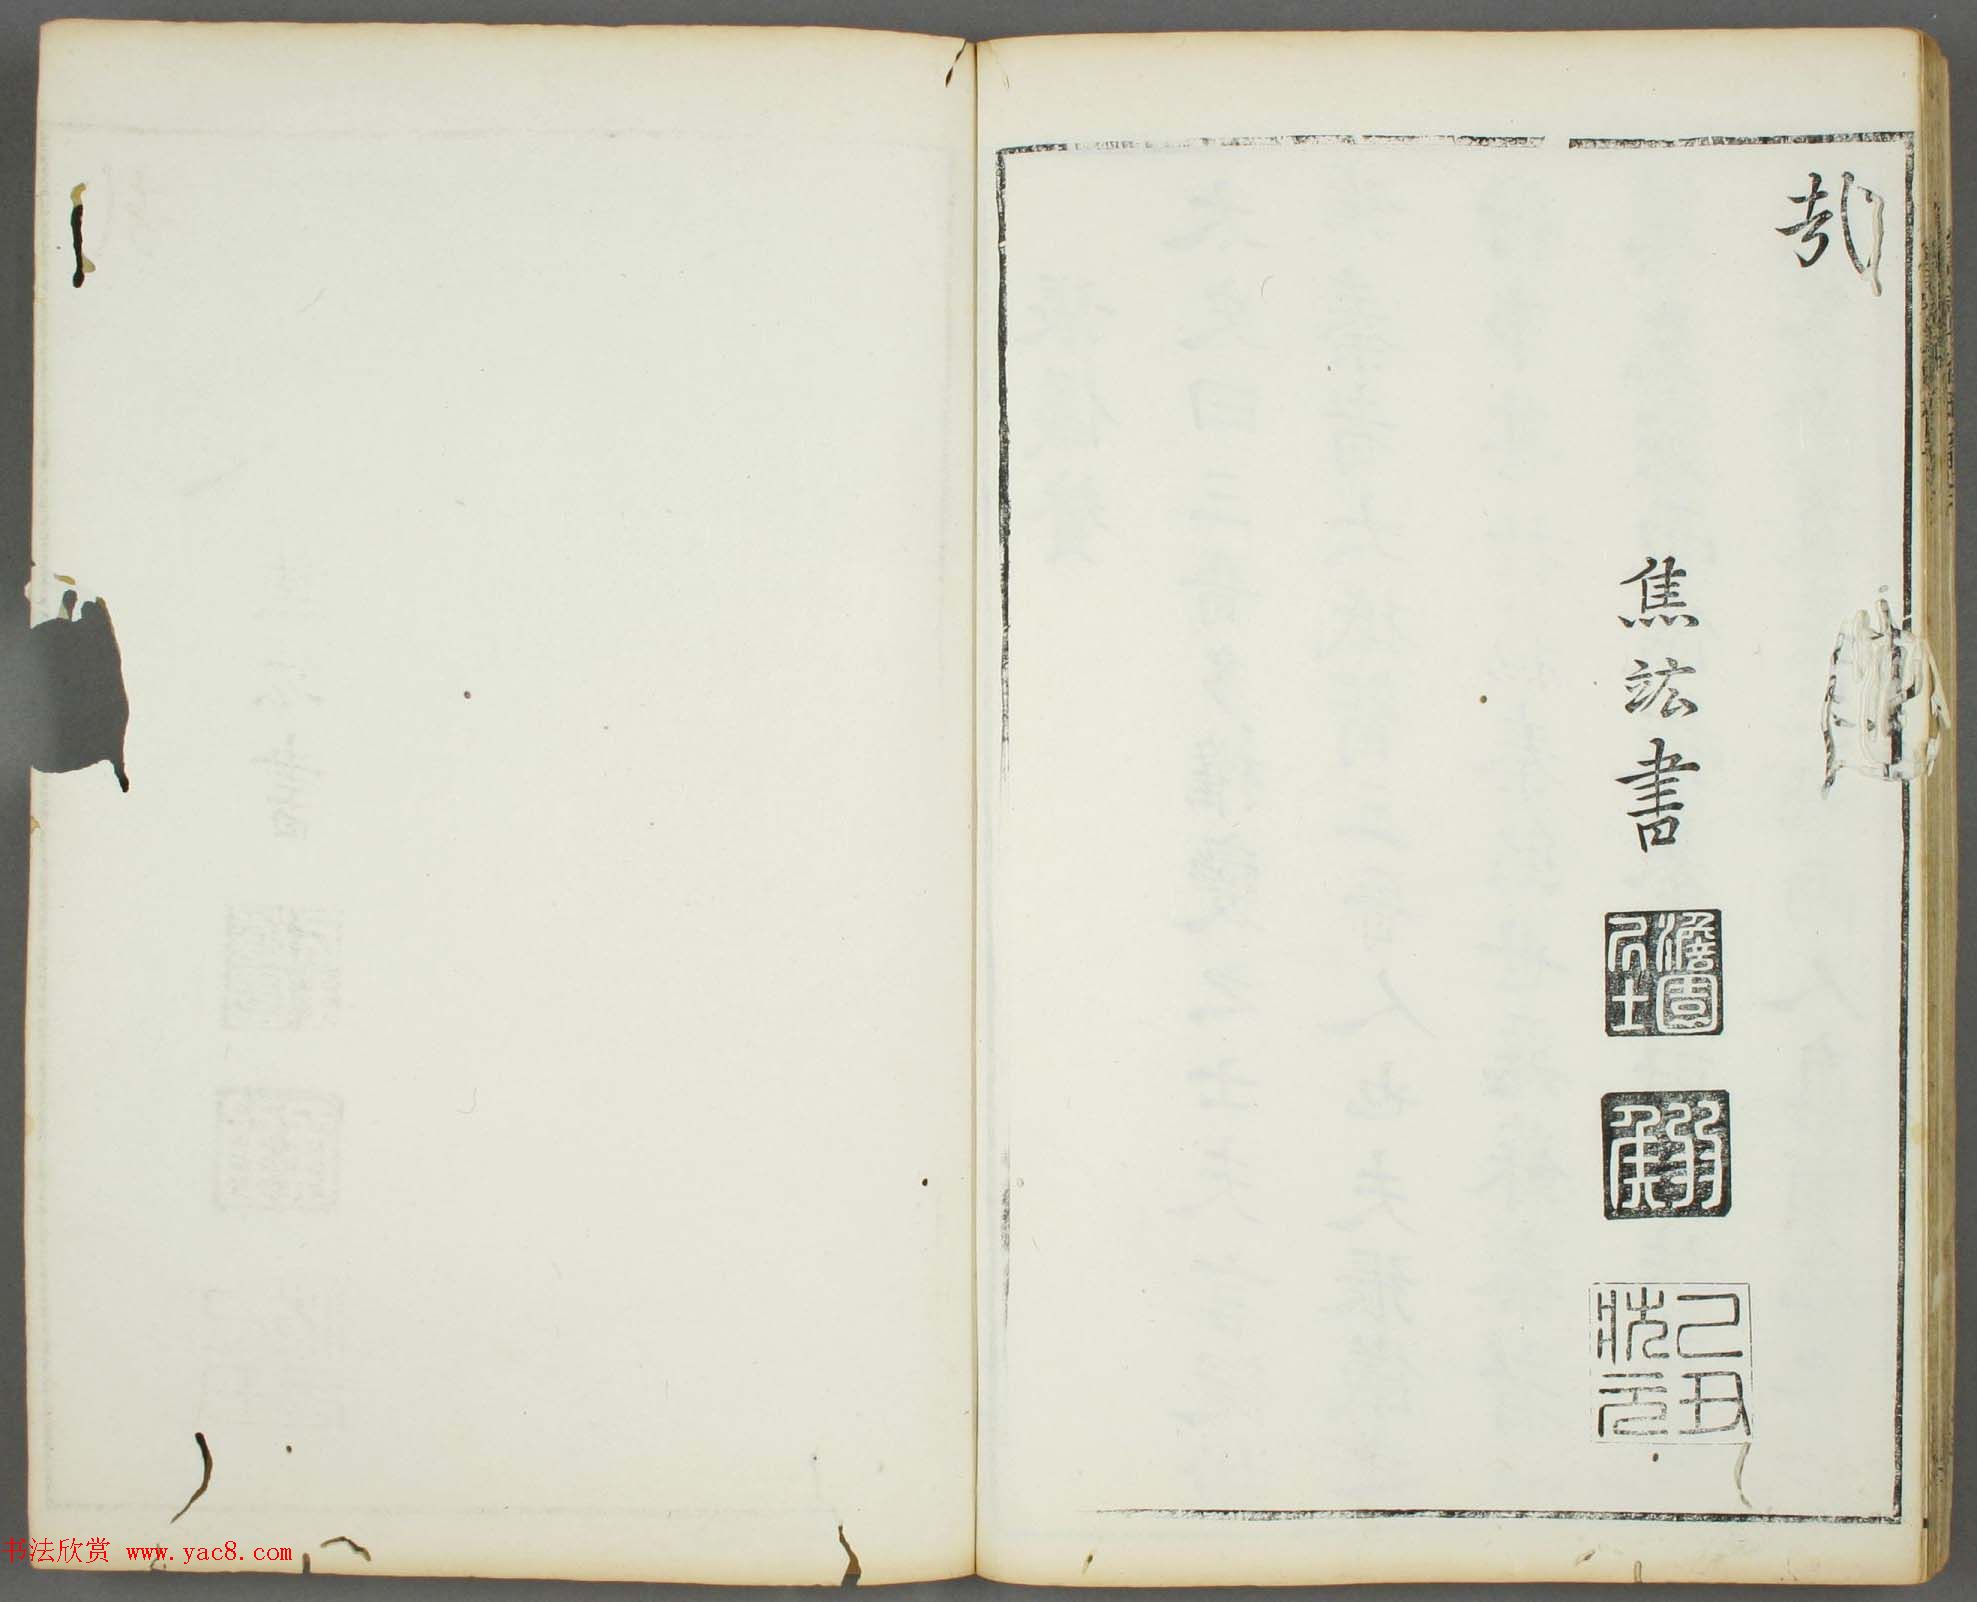 哉
焦竑書
澹園居士
弱侯
己丑狀元
书法欣赏 www.yac8.com